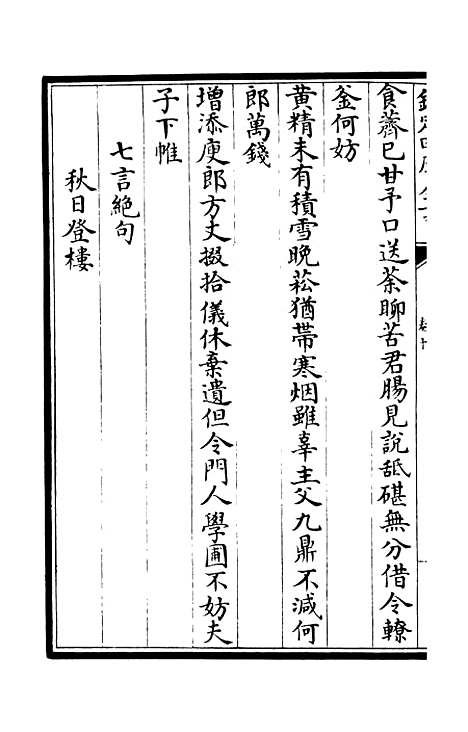 食薺已甘予口送茶聊苦君腸見說砥碪無分借令轑
釜何妨
黄精未有積雪晚菘猶帶寒烟雖辜主父九鼎不減何
郎萬錢
增添庾郎方丈掇拾儀休棄遺但令門人學圃不妨夫
子下帷
七言絕句
秋日登樓